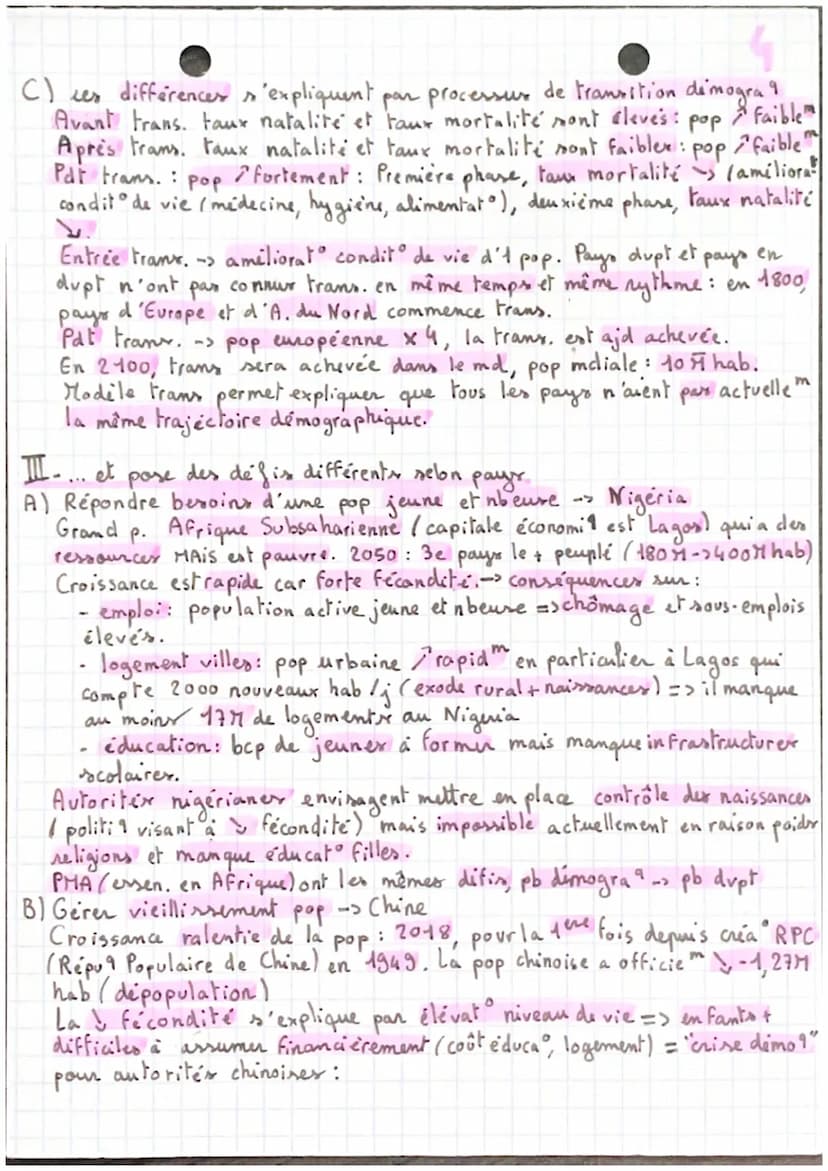 4
C) ces différences s'expliquent par processus de transition démogra q
Avant trans. taux natalité et taux mortalité sont élevés : pop ↗ faible m
Après trans. taux natalité et taux mortalité sont faibles : pop ↗ faible m
Pdt trans. : pop ↗ fortement : Première phase, taux mortalité ↘ (améliora°
condit° de vie (médecine, hygiène, alimentat°), deuxième phase, taux natalité
↘.
Entrée trans. -> améliorat° condit° de vie d'1 pop. Pays dvpt et pays en
dvpt n'ont pas connus trans. en même temps et même rythme : en 1800,
pays d'Europe et d'A. du Nord commence trans.
Pdt trans. -> pop européenne x 4, la trans. est ajd achevée.
En 2100, trans sera achevée dans le md, pop mdiale : 10 M̄ hab.
Modèle trans permet expliquer que tous les pays n'aient pas actuelle m
la même trajéctoire démographique.
III - ... et pose des défis différents selon pays.
A) Répondre besoins d'une pop jeune et nbeuse -> Nigéria
Grand p. Afrique Subsaharienne (capitale économi q est Lagos) qui a des
ressources MAis est pauvre. 2050 : 3e pays le + peuplé (180 M -> 400 M hab)
Croissance est rapide car forte fécondité. -> conséquences sur :
- emploi : population active jeune et nbeuse => chômage et sous-emplois
élevés.
- logement villes : pop urbaine ↗ rapid m en particulier à Lagos qui
compte 2000 nouveaux hab /j (exode rural + naissances) => il manque
au moins 17M de logements au Nigeria
- éducation : bcp de jeunes à former mais manque infrastructures
scolaires.
Autorités nigérianes envisagent mettre en place contrôle des naissances
(politi q visant à ↘ fécondité) mais impossible actuellement en raison poids
religions et manque éducat° filles.
PMA (essen. en Afrique) ont les mêmes défis, pb démogra q -> pb dvpt
B) Gérer vieillissement pop -> Chine
Croissance ralentie de la pop : 2018, pour la 1ère fois depuis créa° RPC
(Répu q Populaire de Chine) en 1949. La pop chinoise a officie m ↘ -1,27M
hab (dépopulation)
La ↓ fécondité s'explique par élévat° niveau de vie => enfants +
difficiles à assumer financièrement (coût éduca°, logement) = "crise démo q"
pour autorités chinoises :